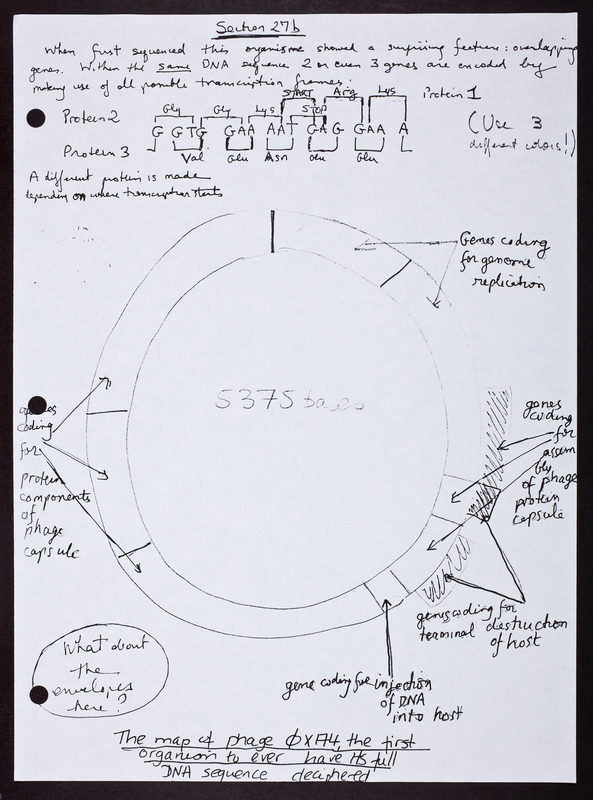 Section 27b
When first sequenced this organisme showed a surprizing feature: overlapping
genes. Within the same DNA sequence 2 or even 3 genes are encoded by
making use of all possible transcription frames!
START Arg Lys Protein 1
Protein 2 Gly Gly Lys STOP
G G T G G A A A A T G A G G A A A
Protein 3 Val Glu Asn Glu Glu
(Use 3
different colors!)
A different protein is made
depending on where transcription starts
Genes coding
for genome
replication
5375 bases
genes
coding
for
protein
components
of
phage
capsule
genes
coding
for
assem
bly
of phage
protein
capsule
genes coding for
terminal destruction
of host
gene coding for injection
of DNA
into host
What about
the
envelopes
here?
The map of phage ØX174, the first
organism to ever have its full
DNA sequence deciphered